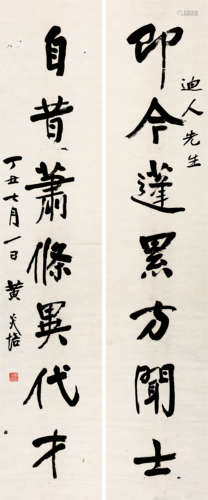 迪人先生
即今蓬累方聞士
自昔蕭條異代才
丁丑七月一日 黄炎培